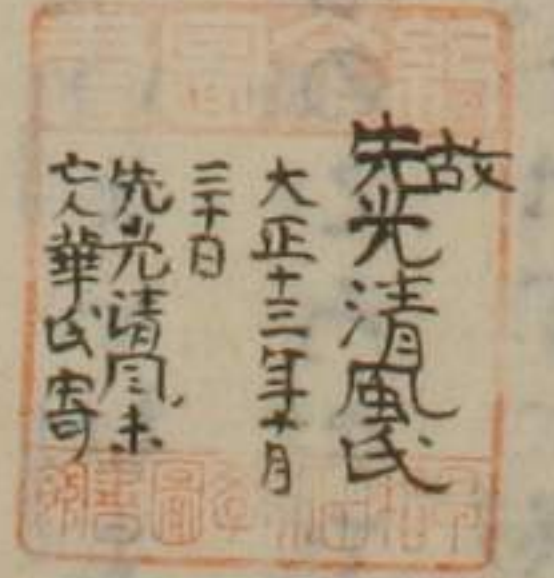 故
先光清風氏
大正十三年十月
三十日
先光清風未
亡人華氏寄